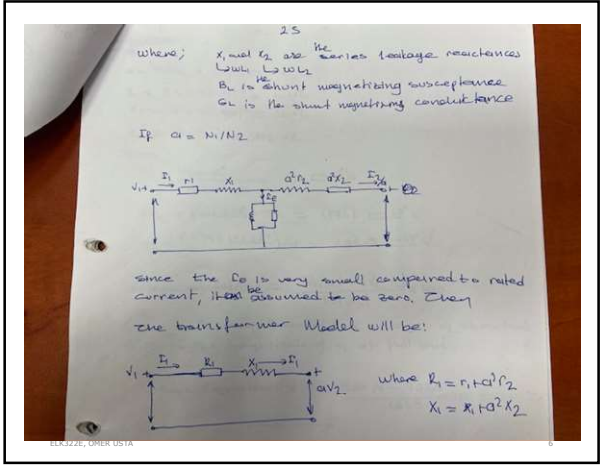 25
where; x1 and x2 are the series leakage reactances
↳wL1 ↳wL2
BL is the shunt magnetizing susceptance
GL is the shunt magnetizing conductance
If a = N1/N2
I1 r1 x1 a²r2 a²x2 I2/a
V1+
IE
since the Ie is very small compared to rated
current, it be assumed to be zero. Then
the transformer Model will be:
I1 R1 X1 I1
V1 + +
aV2
where R1 = r1+a²r2
X1 = x1+a²X2
ELK322E, OMER USTA 6